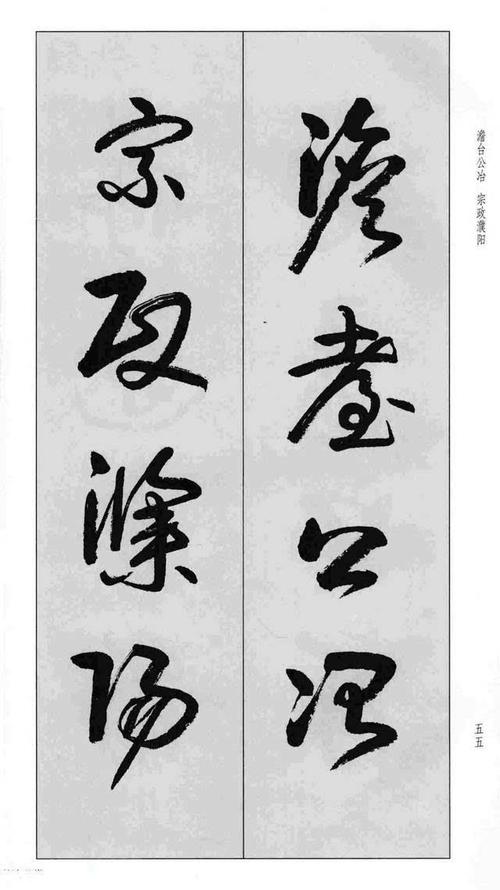 澹臺公冶
宗政濮陽
澹台公冶 宗政濮阳
五五